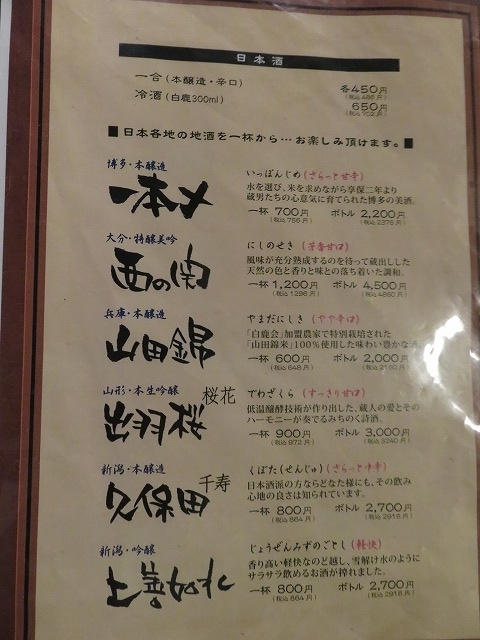 日本酒
一合(本醸造・辛口) 各450円
(税込 486 円)
冷酒(白鹿300ml) 650円
(税込 702 円)
■日本各地の地酒を一杯から…お楽しみ頂けます。■
博多・本醸造
一本〆
いっぽんじめ(さらっと甘辛)
水を選び、米を求めながら享保二年より
蔵男たちの心意気に育てられた博多の美酒。
一杯 700円 ボトル 2,200円
(税込 756 円) (税込 2376 円)
大分・特醸美吟
西の関
にしのせき(芳香甘口)
風味が充分熟成するのを待って蔵出しした
天然の色と香りと味との落ち着いた調和。
一杯 1,200円 ボトル 4,500円
(税込 1296 円) (税込 4860 円)
兵庫・本醸造
山田錦
やまだにしき(やや辛口)
「白鹿会」加盟農家で特別栽培された
「山田錦米」100%使用した味わい豊かな酒
一杯 600円 ボトル 2,000円
(税込 648 円) (税込 2160 円)
山形・本生吟醸
桜花
出羽桜
でわざくら(すっきり甘口)
低温醸酵技術が作り出した、蔵人の愛とその
ハーモニーが奏でるみちのく詩酒。
一杯 900円 ボトル 3,000円
(税込 972 円) (税込 3240 円)
新潟・本醸造
千寿
久保田
くぼた(せんじゅ)(さらっと中辛)
日本酒派の方ならどなた様にも、その飲み
心地の良さは知られています。
一杯 800円 ボトル 2,700円
(税込 864 円) (税込 2916 円)
新潟・吟醸
上善如水
じょうぜんみずのごとし(軽快)
香り高い軽快なのど越し、雪解け水のように
サラサラ飲めるお酒が搾れました。
一杯 800円 ボトル 2,700円
(税込 864 円) (税込 2916 円)